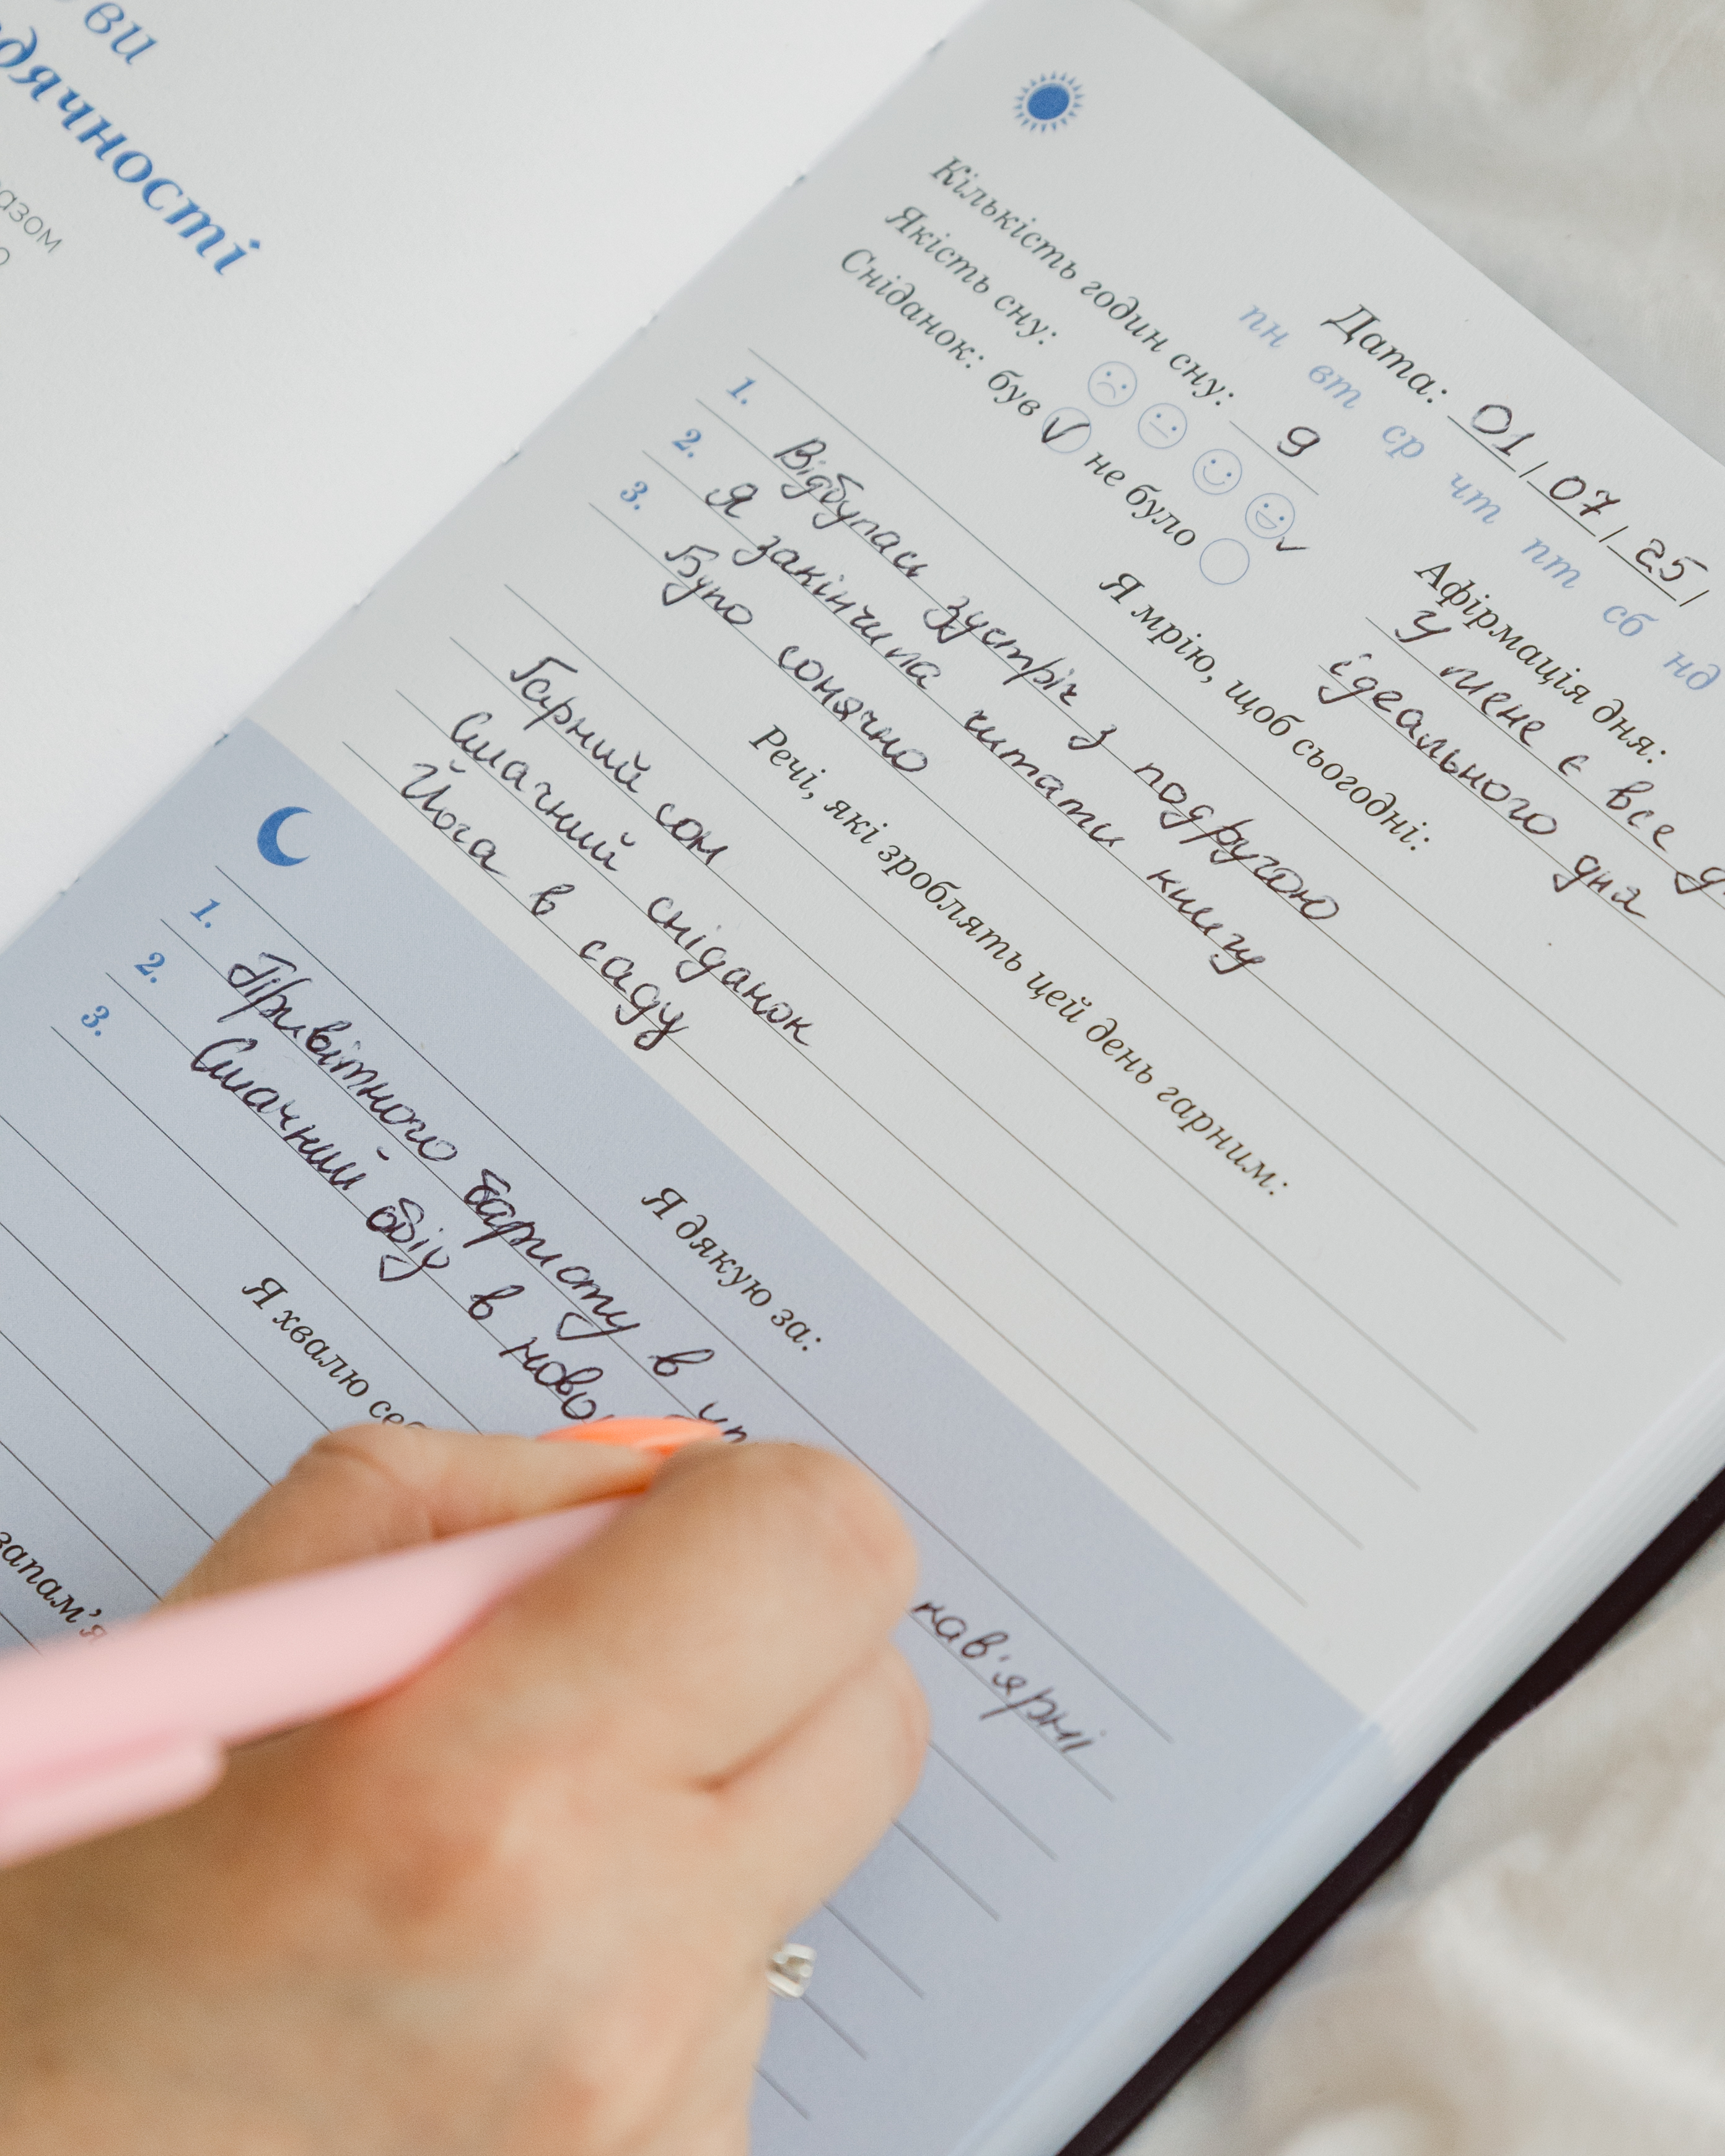 ви
Дата: 01/07/25/
пн вт ср чт пт сб нд
Кількість годин сну: 9
Якість сну:
Сніданок: був ✓ не було
Афірмація дня:
У мене є все
ідеального дня
Я мрію, щоб сьогодні:
1. Відбулась зустріч з подругою
2. Я закінчила читати книгу
3. Було сонячно
Речі, які зроблять цей день гарним:
Гарний сон
Смачний сніданок
Йога в саду
Я дякую за:
1. Привітного баристу в кав'ярні
2. Смачний обід в
3.
Я хвалю